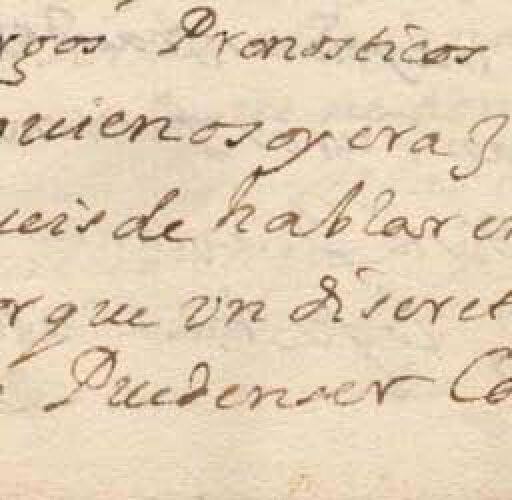 rgos Pronosticos
quien os oyera
ueis de hablar en
orque vn discret
Pueden ser Co